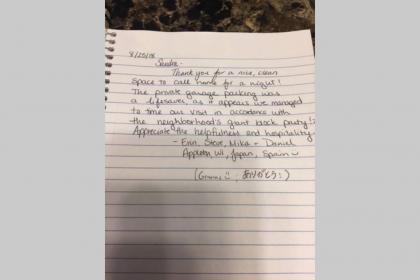 8/25/18
Thank you for a nice, clean
space to call home for a night!
The private garage parking was
a lifesaver, as it appears we managed
to time our visit in accordance with
the neighborhood's giant block party!
Appreciate the helpfulness and hospitality
- Erin, Steve, Mika + Daniel
Appleton, WI, Japan, Spain
ありがとう :)